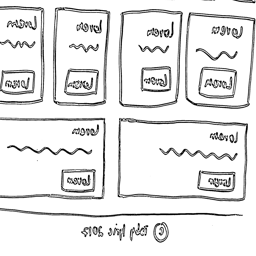 Lorem Lorem Lorem Lorem
Lorem Lorem Lorem Lorem
Lorem Lorem
Lorem Lorem
© 2015